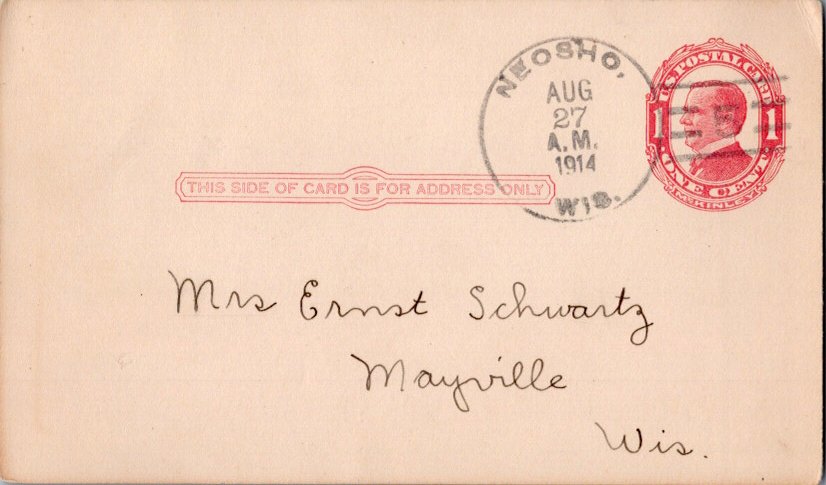 NEOSHO,
AUG
27
A.M.
1914
WIS.
U.S. POSTAL CARD
1 1
ONE CENT
McKINLEY
THIS SIDE OF CARD IS FOR ADDRESS ONLY
Mrs Ernst Schwartz
Mayville
Wis.